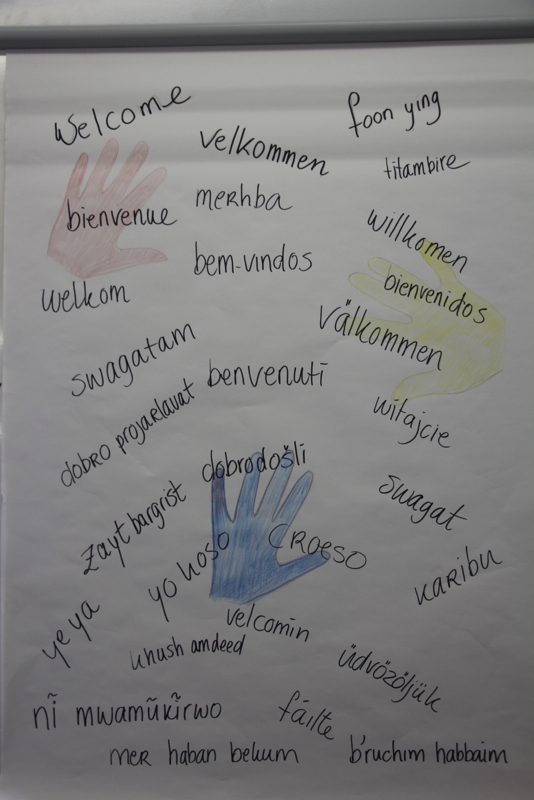 Welcome
foon ying
velkommen
titambire
merhba
bienvenue
willkomen
bem-vindos
bienvenidos
welkom
välkommen
swagatam
benvenuti
dobro projarlavat
witajcie
dobrodošli
swagat
zayt bargrist
croeso
yo hoso
karibu
ye ya
velcomin
khush amdeed
üdvözöljük
nĩ mwamũkĩrwo
fáilte
mer haban bekum
b'ruchim habbaim